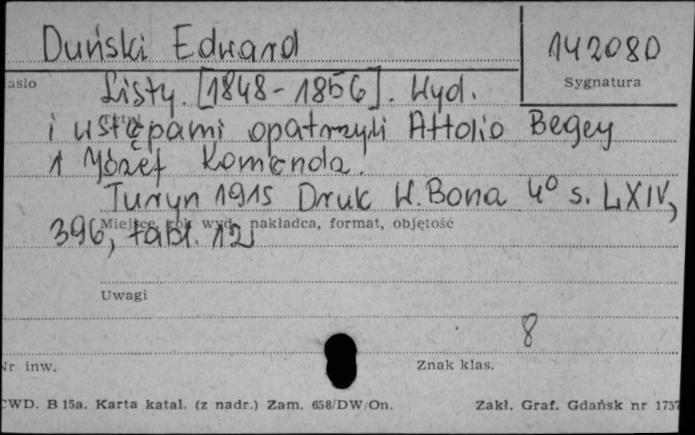 Duński Edward
142080
Sygnatura
asło
Listy. [1848-1856]. Wyd.
i ustępami opatrzyli Attolio Begey
i Józef Komenda.
Turyn 1915 Druk W. Bona 4° s. LXIV,
Miejsce, rok wyd., nakładca, format, objętość
396, tabl. 12
Uwagi
8
Nr inw.
Znak klas.
CWD. B 15a. Karta katal. (z nadr.) Zam. 658/DW/On.
Zakł. Graf. Gdańsk nr 1757